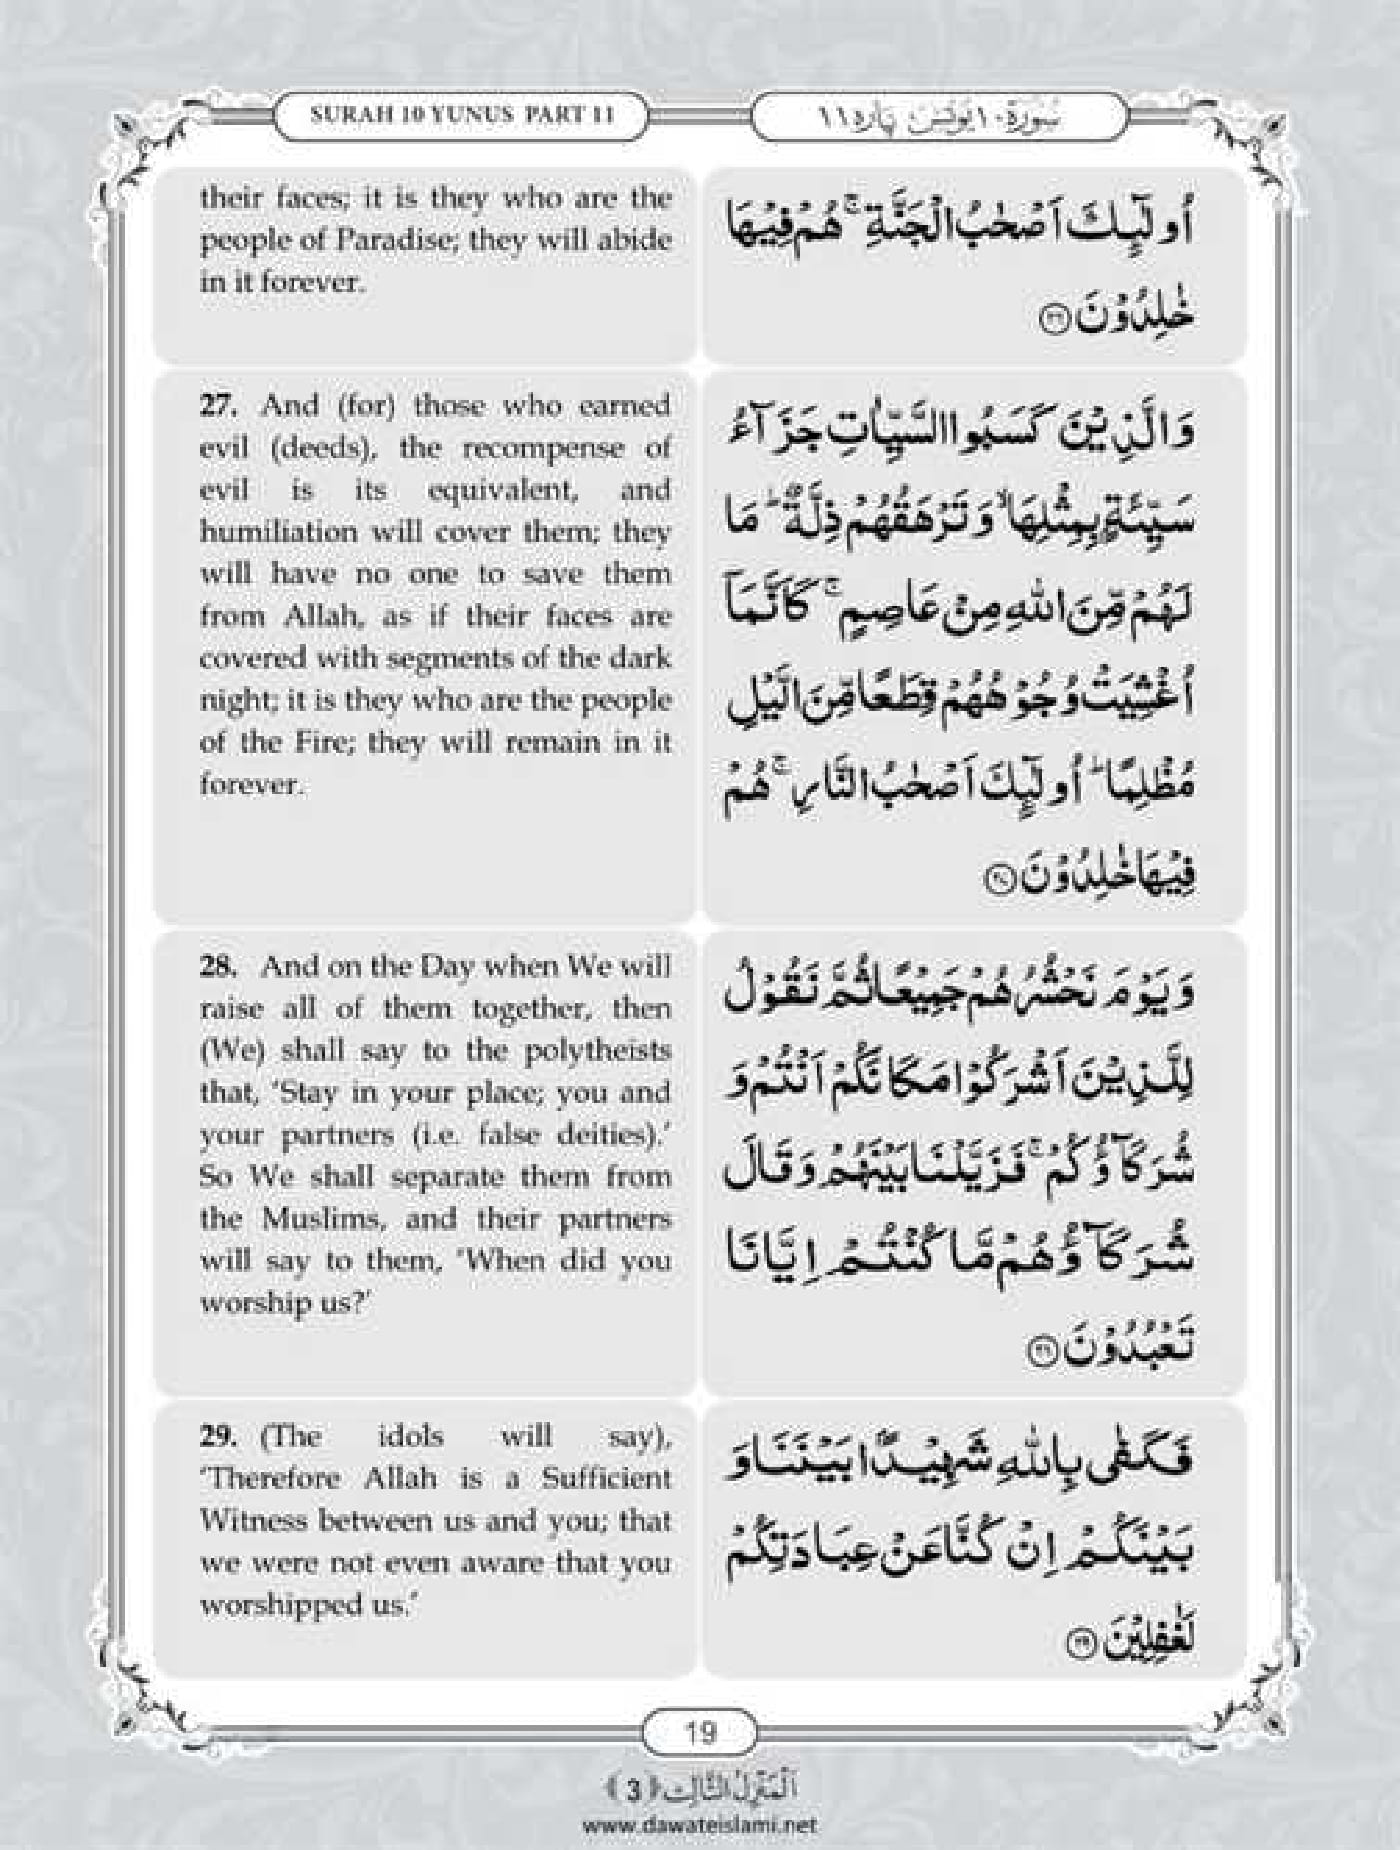 SURAH 10 YUNUS PART 11
سُوْرَة ١٠ يُوْنُس پارہ ١١
their faces; it is they who are the
people of Paradise; they will abide
in it forever.
اُولٰٓئِكَ اَصْحٰبُ الْجَنَّةِ ۚ هُمْ فِيْهَا
خٰلِدُوْنَ ﴿۲۶﴾
27. And (for) those who earned
evil (deeds), the recompense of
evil is its equivalent, and
humiliation will cover them; they
will have no one to save them
from Allah, as if their faces are
covered with segments of the dark
night; it is they who are the people
of the Fire; they will remain in it
forever.
وَالَّذِيْنَ كَسَبُوا السَّيِّاٰتِ جَزَآءُ
سَيِّئَةٍۭ بِمِثْلِهَا ۙ وَ تَرْهَقُهُمْ ذِلَّةٌ ؕ مَا
لَهُمْ مِّنَ اللّٰهِ مِنْ عَاصِمٍ ۚ كَاَنَّمَاۤ
اُغْشِيَتْ وُجُوْهُهُمْ قِطَعًا مِّنَ الَّيْلِ
مُظْلِمًا ؕ اُولٰٓئِكَ اَصْحٰبُ النَّارِ ۚ هُمْ
فِيْهَا خٰلِدُوْنَ ﴿۲۷﴾
28. And on the Day when We will
raise all of them together, then
(We) shall say to the polytheists
that, ‘Stay in your place; you and
your partners (i.e. false deities).’
So We shall separate them from
the Muslims, and their partners
will say to them, ‘When did you
worship us?’
وَ يَوْمَ نَحْشُرُهُمْ جَمِيْعًا ثُمَّ نَقُوْلُ
لِلَّذِيْنَ اَشْرَكُوْا مَكَانَكُمْ اَنْتُمْ وَ
شُرَكَآؤُكُمْ ۚ فَزَيَّلْنَا بَيْنَهُمْ وَ قَالَ
شُرَكَآؤُهُمْ مَّا كُنْتُمْ اِيَّانَا
تَعْبُدُوْنَ ﴿۲۸﴾
29. (The idols will say),
‘Therefore Allah is a Sufficient
Witness between us and you; that
we were not even aware that you
worshipped us.’
فَكَفٰى بِاللّٰهِ شَهِيْدًۢا بَيْنَنَا وَ
بَيْنَكُمْ اِنْ كُنَّا عَنْ عِبَادَتِكُمْ
لَغٰفِلِيْنَ ﴿۲۹﴾
19
اَلْمَنْزِلُ الثَّالِث ﴿3﴾
www.dawateislami.net